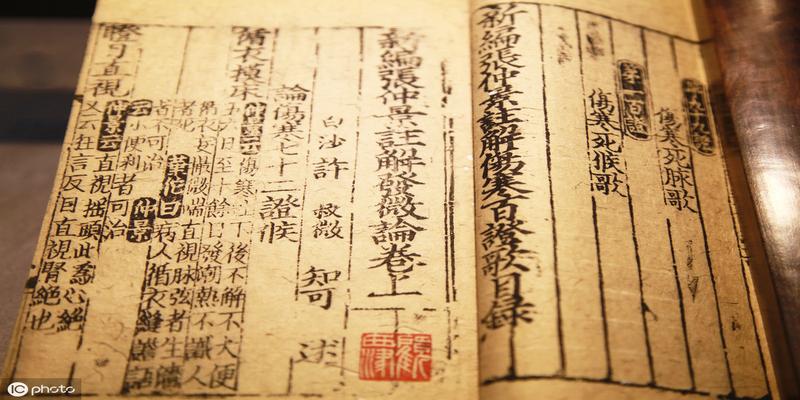 第九十九證
傷寒死脉歌
第一百證
傷寒死候歌
新編張仲景註解傷寒百證歌目錄
新編張仲景註解發微論卷上
白沙許 叔微 知可 述
論傷寒七十二證候
循衣模床 仲景云傷寒吐下後不解不大便
五六日至十餘日發潮熱不識人
微喘直視脉弦者生濇
者死 華佗曰病人循衣縫譫語
者不可治 仲景
云小便利者可治
瞪目直視 仲景云直視搖頭此爲心絕
又云狂言反目直視腎絕也
IC photo